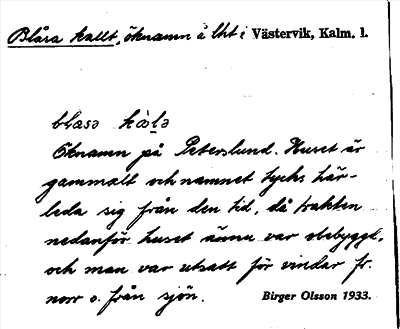 Blåsa kallt, öknamn å lht i Västervik, Kalm. l.
blasə kalə
Öknamn på Peterslund. Huset är
gammalt och namnet tycks här-
leda sig från den tid, då trakten
nedanför huset ännu var obebyggd,
och man var utsatt för vindar fr.
norr o. från sjön. Birger Olsson 1933.